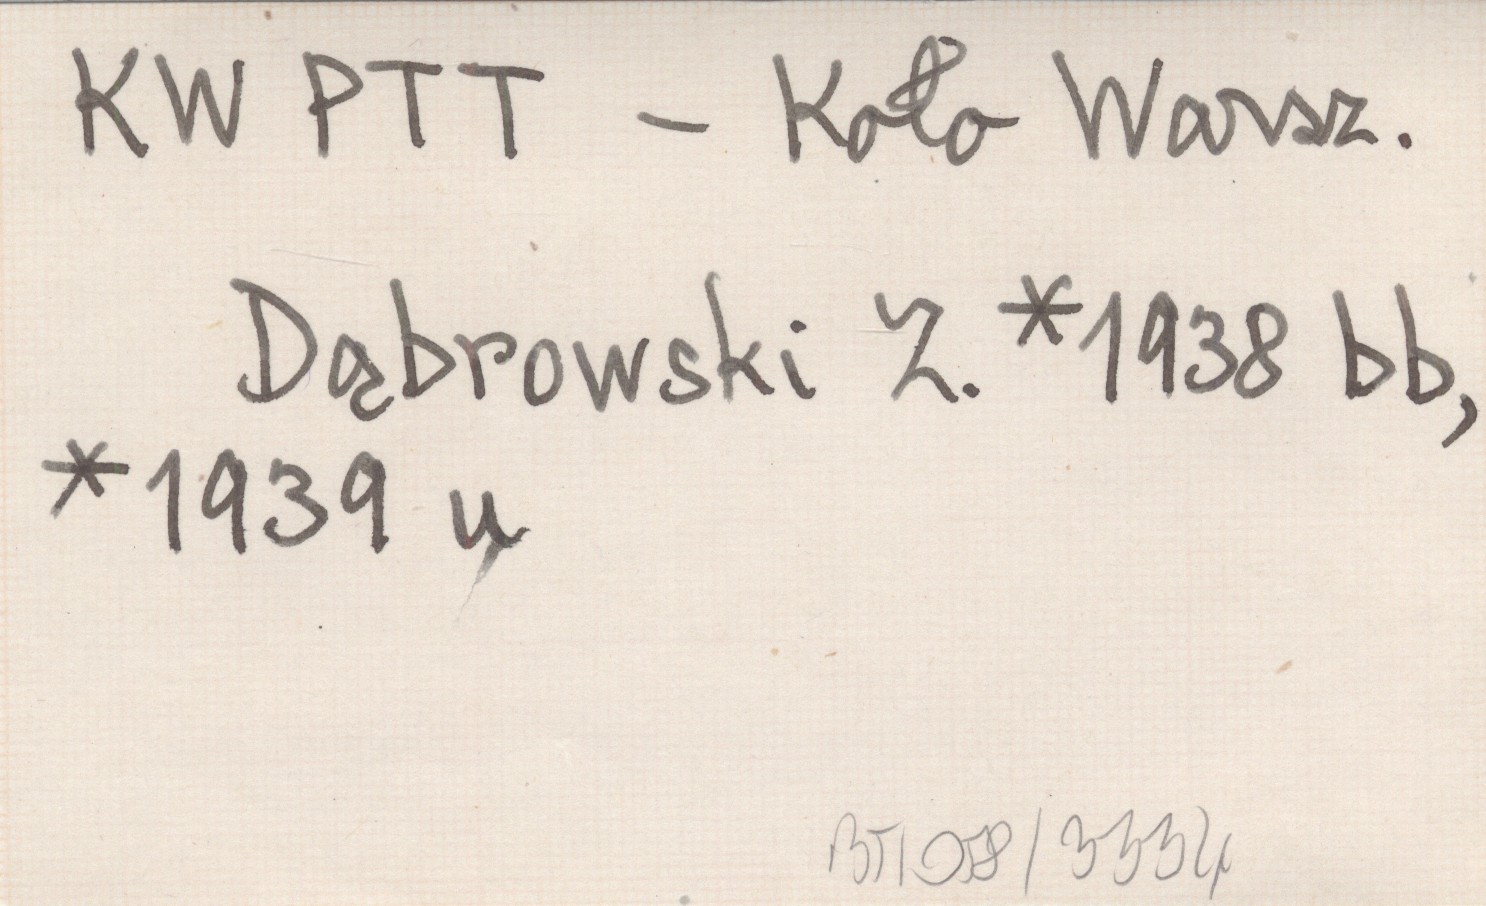 KW PTT - Koło Warsz.
Dąbrowski Z. *1938 bb,
*1939 u
BT/08/3334